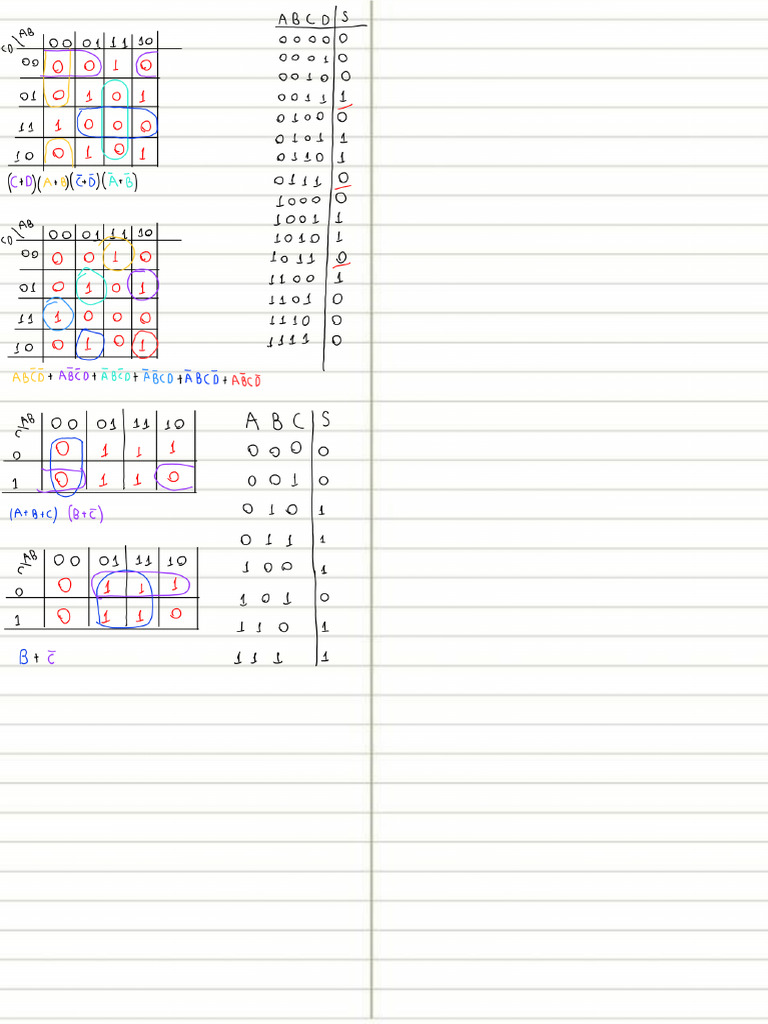 CD\AB 00 01 11 10
00 0 0 1 0
01 0 1 0 1
11 1 0 0 0
10 0 1 0 1
(C+D)(A+B)(C̅+D̅)(A̅+B̅)
CD\AB 00 01 11 10
00 0 0 1 0
01 0 1 0 1
11 1 0 0 0
10 0 1 0 1
ABC̅D̅ + AB̅C̅D + A̅BC̅D + A̅B̅CD + A̅BCD̅ + AB̅CD̅
A B C D S
0 0 0 0 0
0 0 0 1 0
0 0 1 0 0
0 0 1 1 1
0 1 0 0 0
0 1 0 1 1
0 1 1 0 1
0 1 1 1 0
1 0 0 0 0
1 0 0 1 1
1 0 1 0 1
1 0 1 1 0
1 1 0 0 1
1 1 0 1 0
1 1 1 0 0
1 1 1 1 0
C\AB 00 01 11 10
0 0 1 1 1
1 0 1 1 0
(A+B+C) (B+C̅)
C\AB 00 01 11 10
0 0 1 1 1
1 0 1 1 0
B + C̅
A B C S
0 0 0 0
0 0 1 0
0 1 0 1
0 1 1 1
1 0 0 1
1 0 1 0
1 1 0 1
1 1 1 1